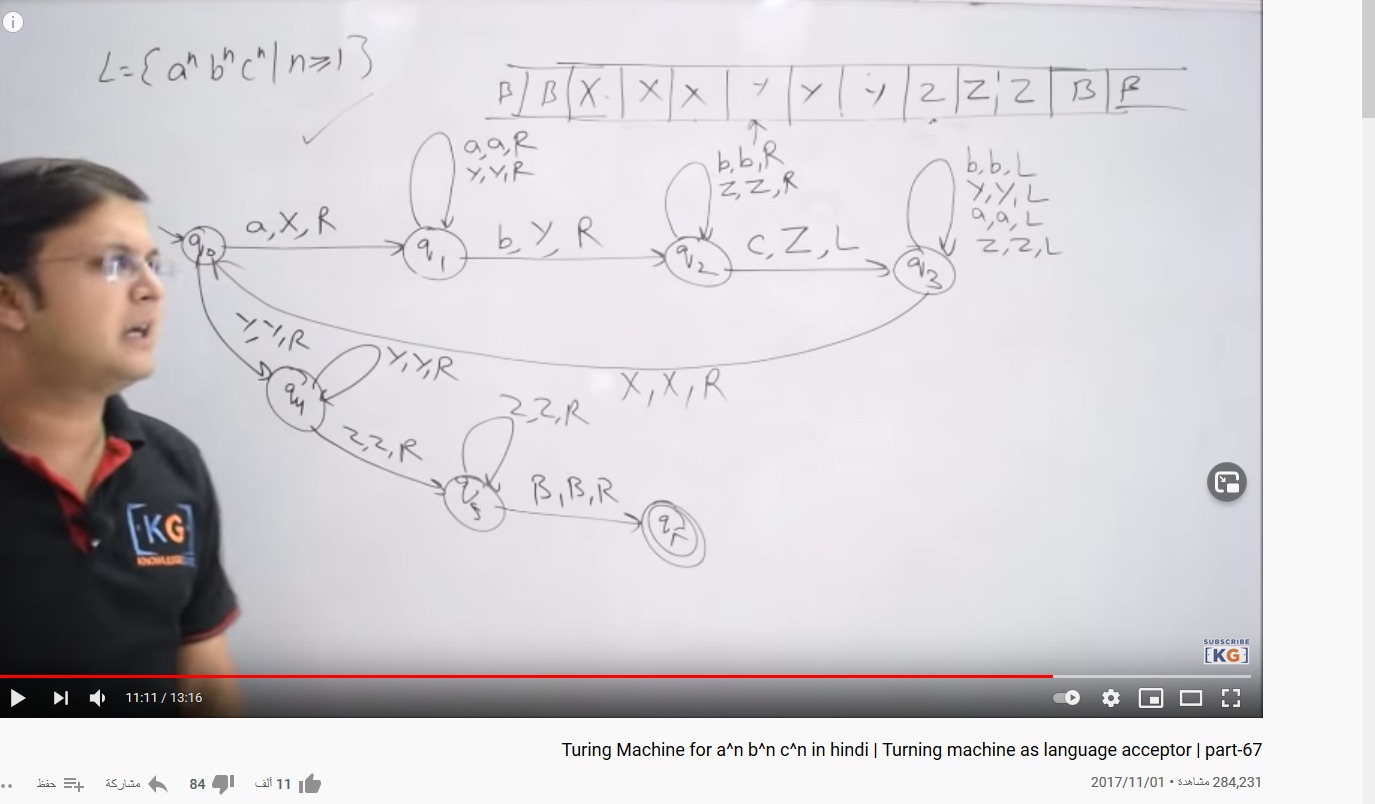 i
L={aⁿ bⁿ cⁿ | n≥1}
B B X X X Y Y Y Z Z Z B B
a,a,R
Y,Y,R
b,b,R
Z,Z,R
b,b,L
Y,Y,L
a,a,L
Z,Z,L
q0
a,X,R
q1
b,Y,R
q2
C,Z,L
q3
Y,Y,R
q4
Y,Y,R
X,X,R
Z,Z,R
Z,Z,R
q5
B,B,R
qF
[KG]
SUBSCRIBE
[KG]
11:11 / 13:16
Turing Machine for a^n b^n c^n in hindi | Turning machine as language acceptor | part-67
284,231 مشاهدة • 2017/11/01
11 ألف
84
مشاركة
حفظ